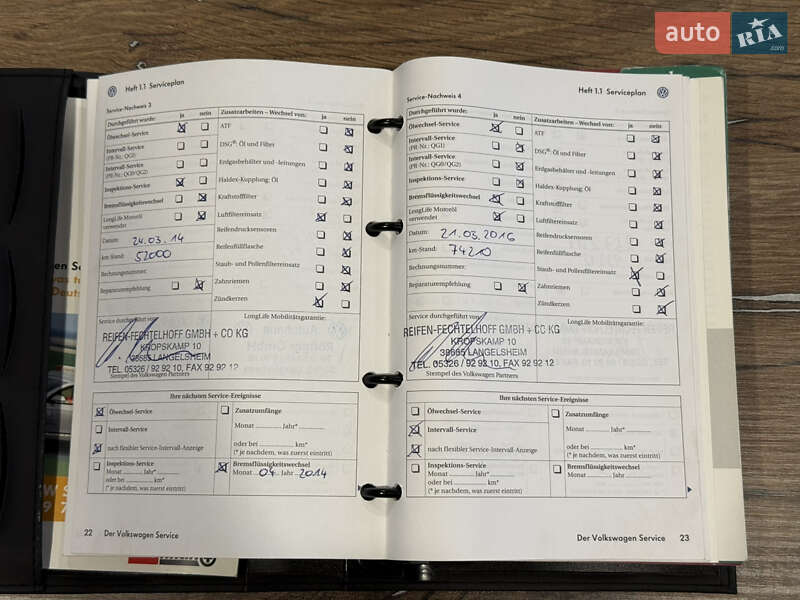 auto RIA.com
Heft 1.1 Serviceplan
Service-Nachweis 3
Durchgeführt wurde: ja nein
Ölwechsel-Service
Intervall-Service
(PR-Nr.: QG1)
Intervall-Service
(PR-Nr.: QG0/QG2)
Inspektions-Service
Bremsflüssigkeitswechsel
LongLife Motoröl
verwendet
Datum: 24.03.14
km-Stand: 52000
Rechnungsnummer:
Reparaturempfehlung
Zusatzarbeiten – Wechsel von: ja nein
ATF
DSG®: Öl und Filter
Erdgasbehälter und -leitungen
Haldex-Kupplung: Öl
Kraftstofffilter
Luftfiltereinsatz
Reifendrucksensoren
Reifenfüllflasche
Staub- und Pollenfiltereinsatz
Zahnriemen
Zündkerzen
Service durchgeführt von:
LongLife Mobilitätsgarantie:
REIFEN-FECHTELHOFF GMBH + CO KG
KROPSKAMP 10
38685 LANGELSHEIM
TEL. 05326 / 92 92 10, FAX 92 92 12
Stempel des Volkswagen Partners
Ihre nächsten Service-Ereignisse
Ölwechsel-Service
Intervall-Service
nach flexibler Service-Intervall-Anzeige
Inspektions-Service
Monat Jahr*
oder bei km*
(* je nachdem, was zuerst eintritt)
Zusatzumfänge
Monat Jahr*
oder bei km*
(* je nachdem, was zuerst eintritt)
Bremsflüssigkeitswechsel
Monat 04 Jahr 2014
22 Der Volkswagen Service
Heft 1.1 Serviceplan
Service-Nachweis 4
Durchgeführt wurde: ja nein
Ölwechsel-Service
Intervall-Service
(PR-Nr.: QG1)
Intervall-Service
(PR-Nr.: QG0/QG2)
Inspektions-Service
Bremsflüssigkeitswechsel
LongLife Motoröl
verwendet
Datum: 21.03.2016
km-Stand: 74210
Rechnungsnummer:
Reparaturempfehlung
Zusatzarbeiten – Wechsel von: ja nein
ATF
DSG®: Öl und Filter
Erdgasbehälter und -leitungen
Haldex-Kupplung: Öl
Kraftstofffilter
Luftfiltereinsatz
Reifendrucksensoren
Reifenfüllflasche
Staub- und Pollenfiltereinsatz
Zahnriemen
Zündkerzen
Service durchgeführt von:
LongLife Mobilitätsgarantie:
REIFEN-FECHTELHOFF GMBH + CO KG
KROPSKAMP 10
38685 LANGELSHEIM
TEL. 05326 / 92 92 10, FAX 92 92 12
Stempel des Volkswagen Partners
Ihre nächsten Service-Ereignisse
Ölwechsel-Service
Intervall-Service
nach flexibler Service-Intervall-Anzeige
Inspektions-Service
Monat Jahr*
oder bei km*
(* je nachdem, was zuerst eintritt)
Zusatzumfänge
Monat Jahr*
oder bei km*
(* je nachdem, was zuerst eintritt)
Bremsflüssigkeitswechsel
Monat Jahr
Der Volkswagen Service 23